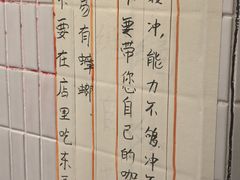 冲，能力不够冲不
不要带您自己的咖
易有蟑螂.
不要在店里吃东